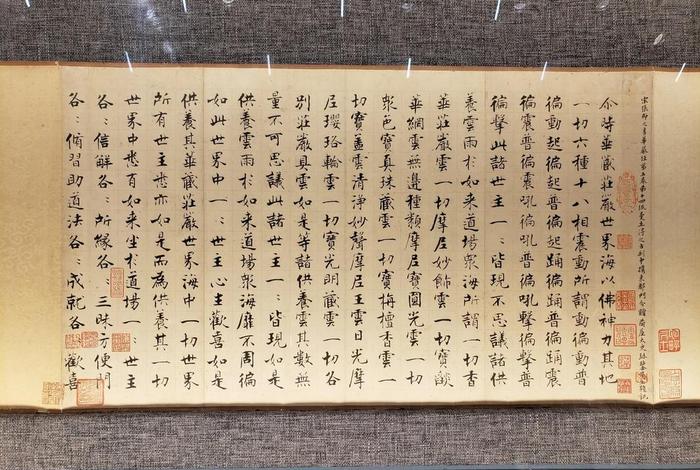 宋張即之書華嚴經第五卷第十四
尒時華藏莊嚴世界海以佛神力其地
一切六種十八相震動所謂動徧動普
徧動起徧起普徧起踊徧踊普徧踊震
徧震普徧震吼徧吼普徧吼擊徧擊普
徧擊此諸世主一：皆現不思議諸供
養雲雨於如来道場眾海所謂一切香
華莊嚴雲一切摩尼妙飾雲一切寶燄
華網雲無邊種類摩尼寶圓光雲一切
眾色寶真珠藏雲一切寶栴檀香雲一
切寶蓋雲清淨妙聲摩尼王雲日光摩
尼瓔珞輪雲一切寶光明藏雲一切各
別莊嚴具雲如是等諸供養雲其數無
量不可思議此諸世主一：皆現如是
供養雲雨於如来道場眾海靡不周徧
如此世界中一：世主心生歡喜如是
供養其華藏莊嚴世界海中一切世界
所有世主悉亦如是而為供養其一切
世界中悉有如来坐於道場一：世主
各：信解各：所緣各：三昧方便門
各：脩習助道法各：成就各：歡喜